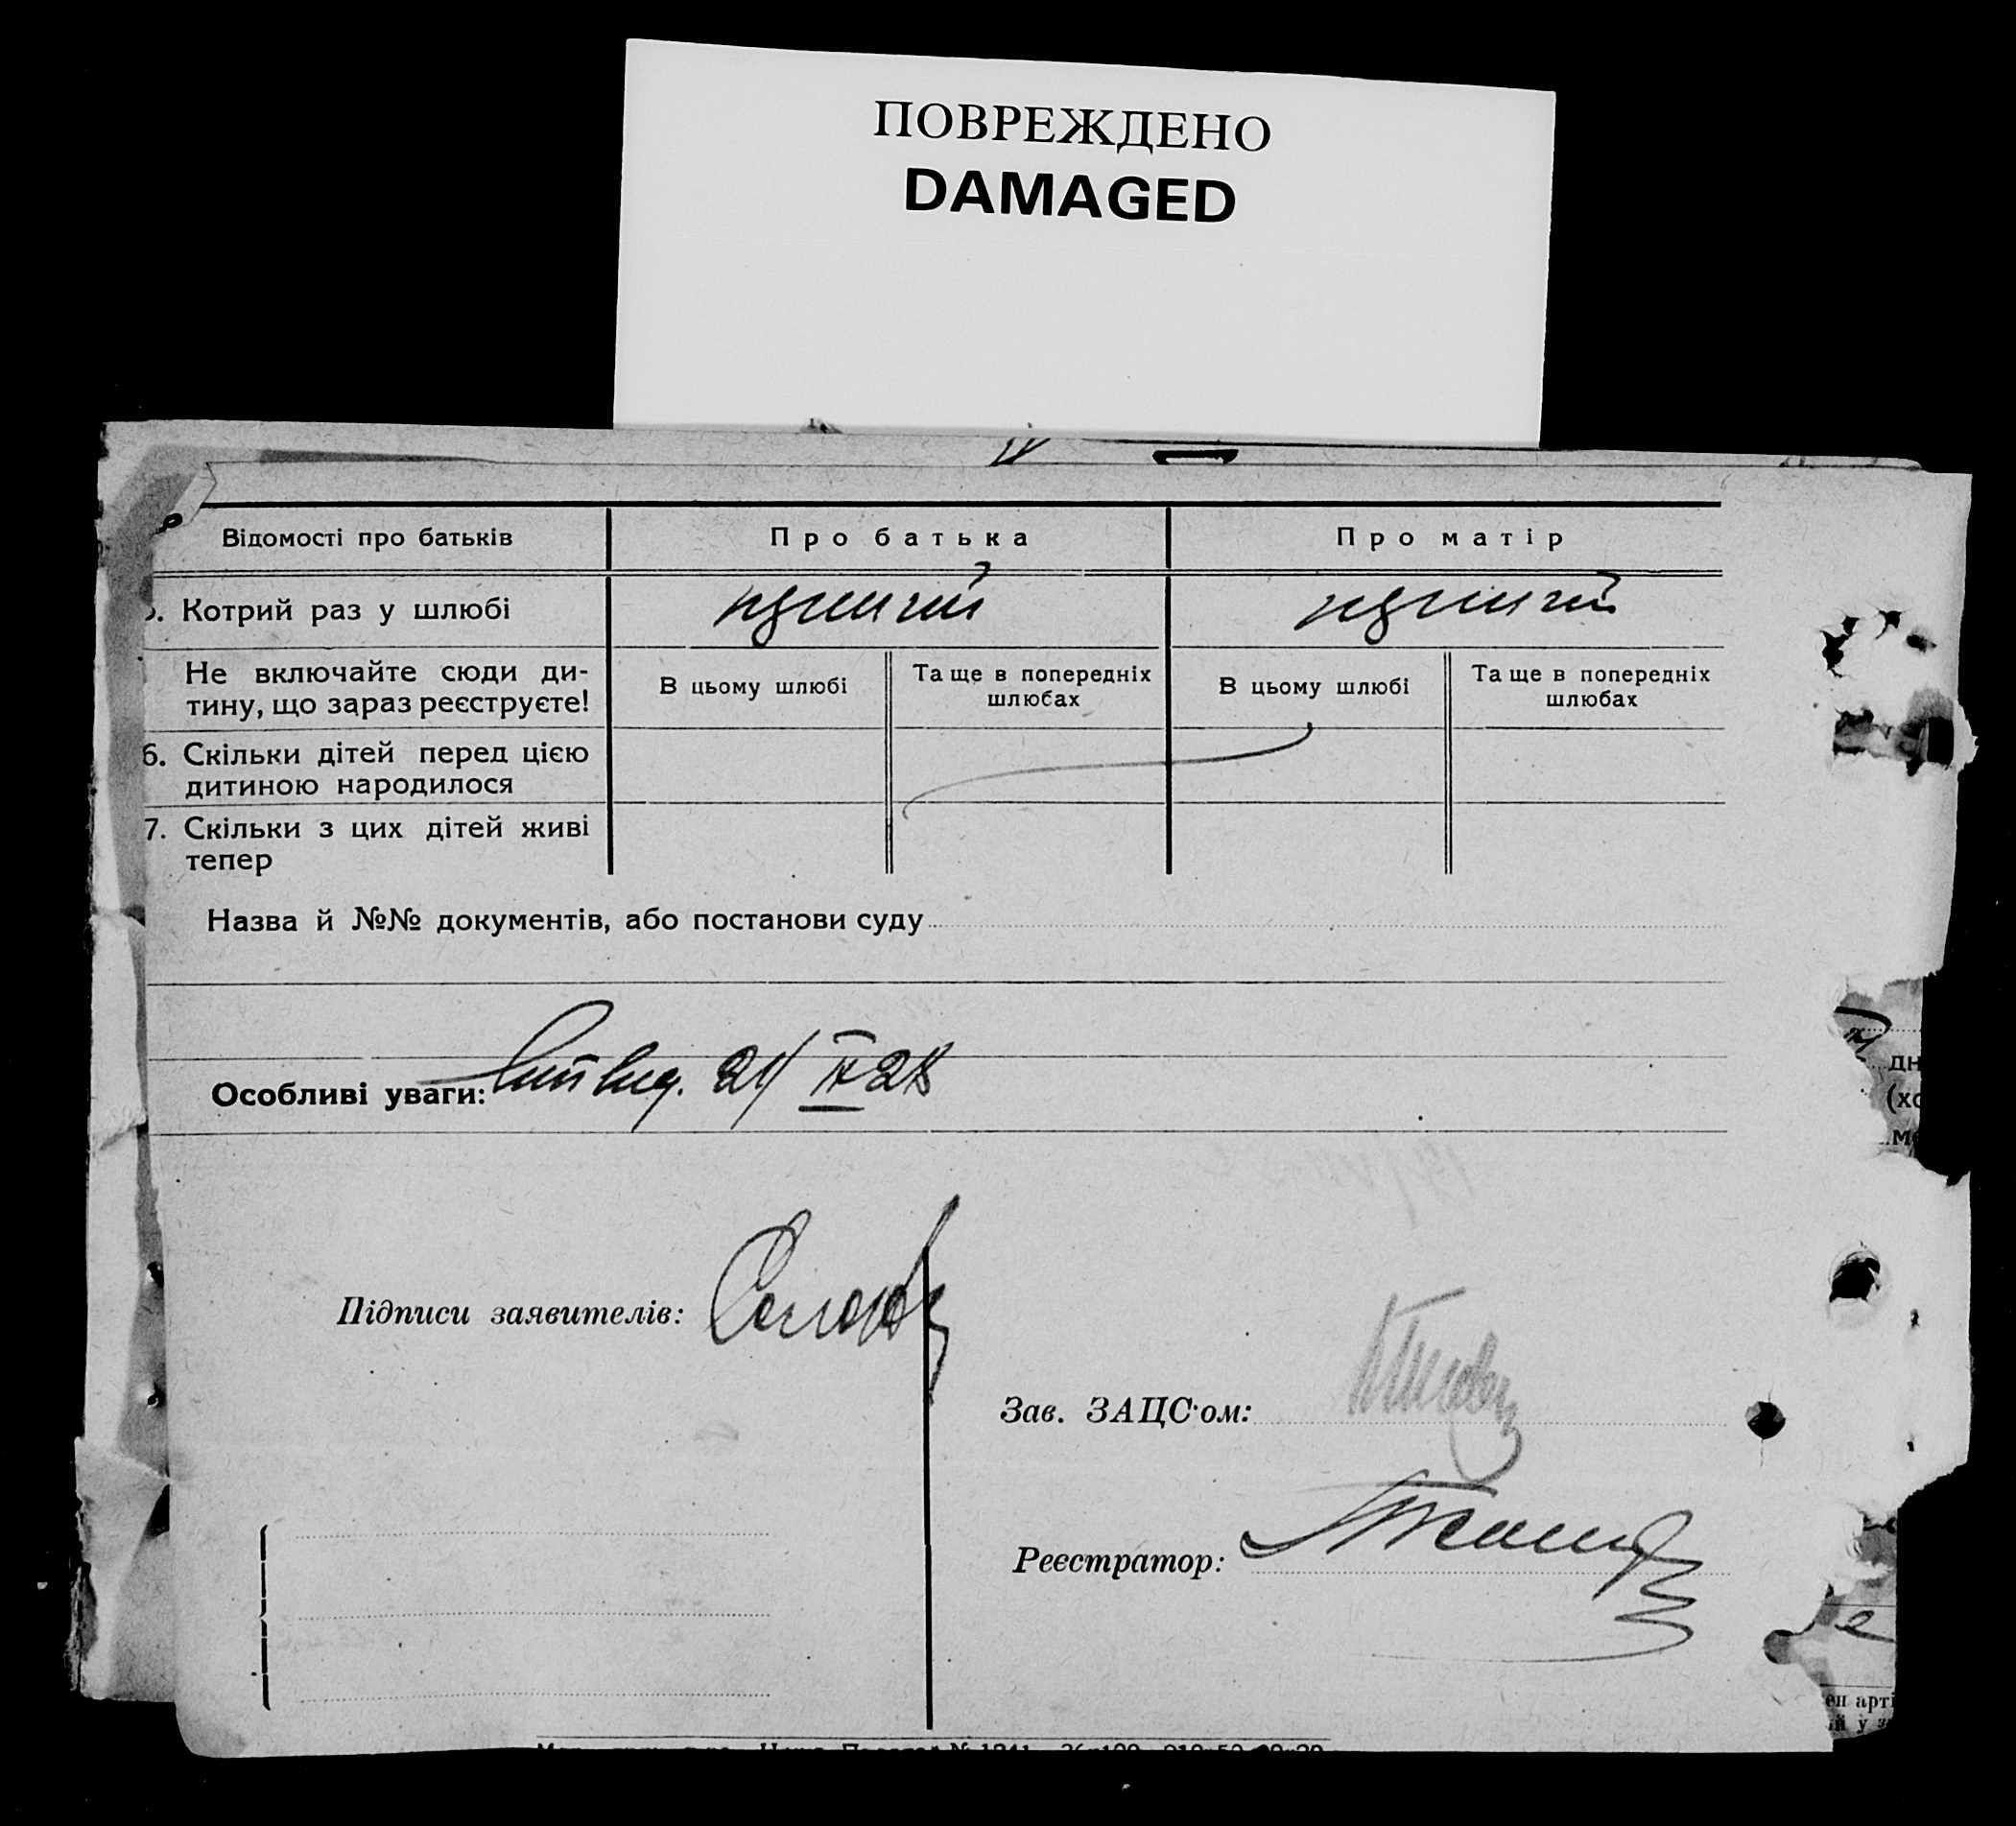 ПОВРЕЖДЕНО
DAMAGED
Відомості про батьків
Про батька
Про матір
Котрий раз у шлюбі
перший
перший
Не включайте сюди ди-
тину, що зараз реєструєте!
В цьому шлюбі
Та ще в попередніх
шлюбах
В цьому шлюбі
Та ще в попередніх
шлюбах
6. Скільки дітей перед цією
дитиною народилося
7. Скільки з цих дітей живі
тепер
Назва й №№ документів, або постанови суду
Особливі уваги: 21/IV 28
Підписи заявителів:
Зав. ЗАЦС'ом:
Реєстратор: